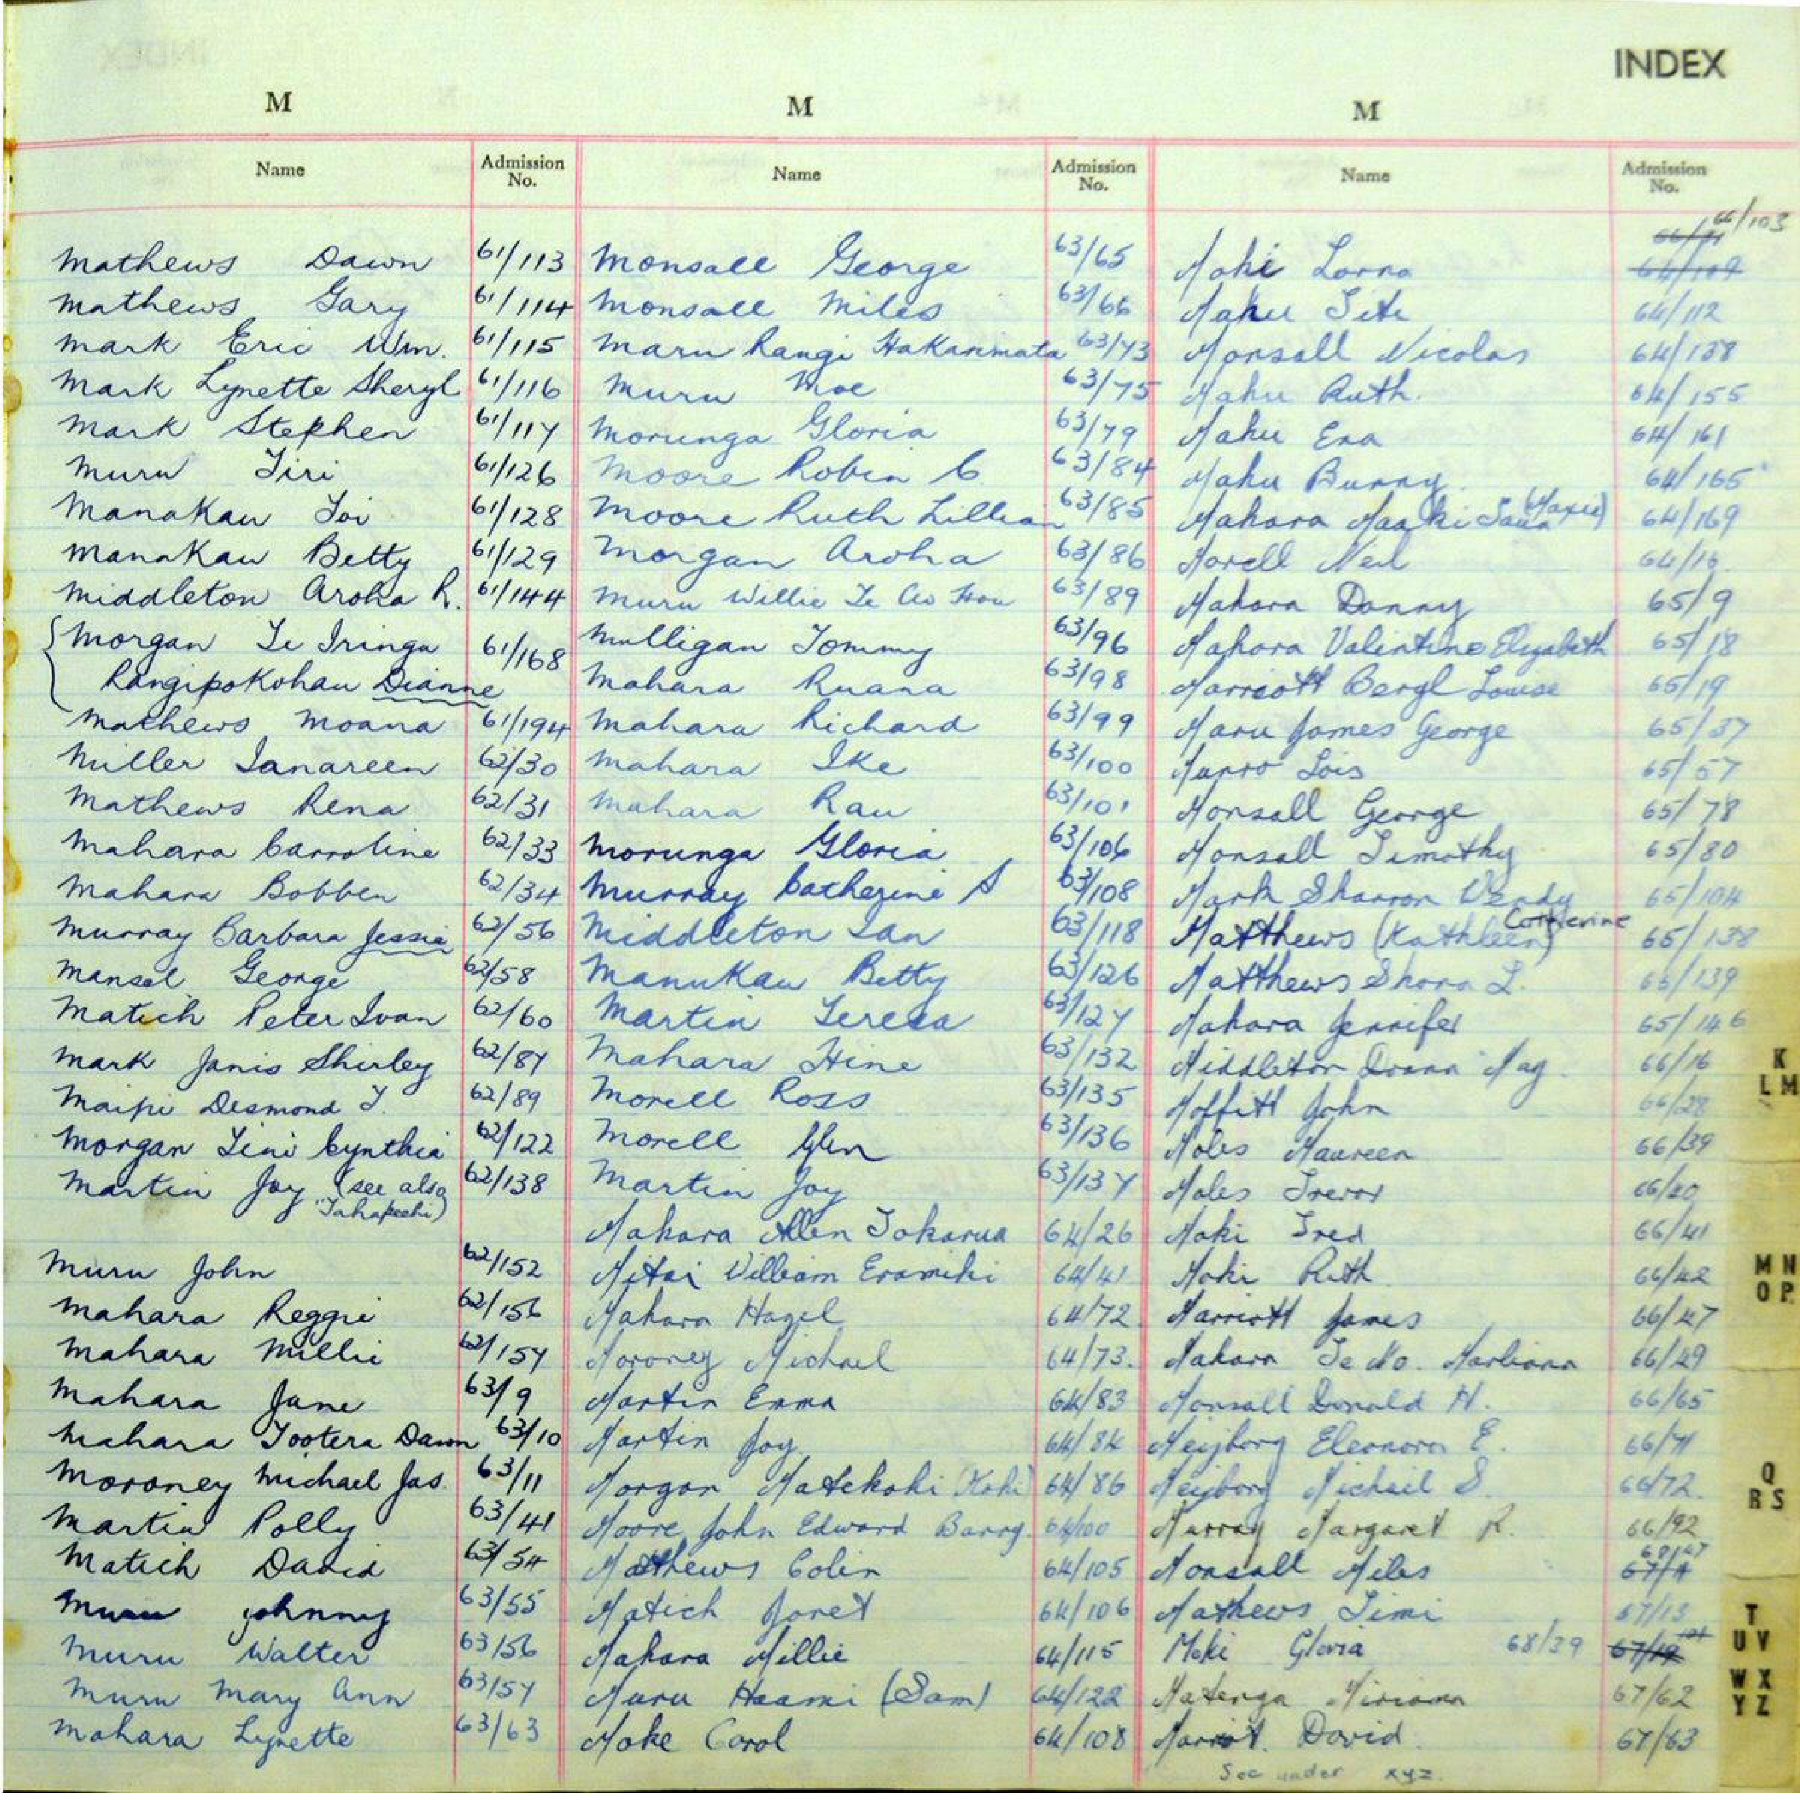 INDEX
M M M
Name Admission No. Name Admission No. Name Admission No.
66/103
Mathews Dawn 61/113
Mathews Gary 61/114
Mark Eric Wm. 61/115
Mark Lynette Sheryl 61/116
Mark Stephen 61/117
Muru Tiri 61/126
Manakau Toi 61/128
Manakau Betty 61/129
Middleton Aroha R. 61/144
Morgan Te Iringa 61/168
Rangipokohau Dianne
Mathews Moana 61/194
Miller Ianareen 62/30
Mathews Rena 62/31
Mahara Carroline 62/33
Mahara Bobben 62/34
Murray Barbara Jessie 62/56
Mansel George 62/58
Matich Peter Ivan 62/60
Mark Janis Shirley 62/87
Maipi Desmond T. 62/89
Morgan Tini Cynthia 62/122
Martin Joy (see also 62/138
Muru John 62/152
Mahara Reggie 62/156
Mahara Millie 62/157
Mahara Jane 63/9
Mahara Tootera Dawn 63/10
Moroney Michael Jas. 63/11
Martin Polly 63/41
Matich David 63/54
Muru Johnny 63/55
Muru Walter 63/56
Muru Mary Ann 63/57
Mahara Lynette 63/63
Monsall George 63/65
Monsall Miles 63/66
Maru Rangi Hakarimata 63/73
Muru Moe 63/75
Morunga Gloria 63/79
Moore Robin C. 63/84
Moore Ruth Lillian 63/85
Morgan Aroha 63/86
Muru Willie Te Au Hou 63/89
Mulligan Tommy 63/96
Mahara Ruana 63/98
Mahara Richard 63/99
Mahara Ike 63/100
Mahara Rau 63/101
Morunga Gloria 63/106
Murray Catherine S 63/108
Middleton Ian 63/118
Manukau Betty 63/126
Martin Teresa 63/127
Mahara Hine 63/132
Morell Ross 63/135
Morell Glen 63/136
Martin Joy 63/137
Mahara Allen Tokorua 64/26
Mitai William Eramiki 64/41
Mahara Hazel 64/72
Moroney Michael 64/73.
Martin Emma 64/83
Martin Joy 64/84
Morgan Matekohi (Kohi) 64/86
Moore John Edward Barry. 64/100
Mathews Colin 64/105
Matich Janet 64/106
Mahara Millie 64/115
Muru Haami (Sam) 64/122
Moke Carol 64/108
Moki Lorna
Mahu Tite 64/112
Monsall Nicolas 64/138
Mahu Ruth. 64/155
Mahu Ena 64/161
Mahu Bunny. 64/165
Mahara (Maxie) 64/169
Morell Neil 64/16
Mahara Danny 65/9
Mahara Valentine Elizabeth 65/18
Marriott Beryl Louise 65/19
Maru James George 65/37
Munro Lois 65/57
Monsall George 65/78
Monsall Timothy 65/80
Mark Sharron Wendy 65/104
Catherine
Matthews (Kathleen) 65/138
Matthews Shona L. 65/139
Mahara Jennifer 65/146
Middleton Donna May. 66/16
Moffitt John 66/28
Moles Maureen 66/39
Moles Trevor 66/40
Moki Fred 66/41
Moki Ruth 66/42
Marriott James 66/47
Mahara Te Mo. 66/49
Monsall Donald H. 66/65
Meijborg Eleonora E. 66/71
Meijborg Michiel S. 66/72.
Murray Margaret R. 66/92
Monsall Miles
Mathews Timi 67/13
Moki Gloria 68/39
Matenga Miriama 67/62
Marriot. David. 67/63
See under xyz.
K
L M
M N
O P
Q
R S
T
U V
W X
Y Z